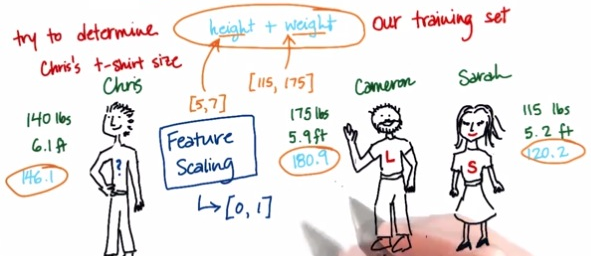 try to determine
Chris's t-shirt size
height + weight
our training set
Chris
[5,7]
[115, 175]
Cameron
Sarah
140 lbs
6.1 ft
146.1
?
Feature
Scaling
↳ [0, 1]
175 lbs
5.9 ft
180.9
L
S
115 lbs
5.2 ft
120.2